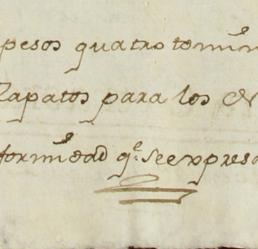 pesos quatro tomin
Zapatos para los
formedad qe. se expresa